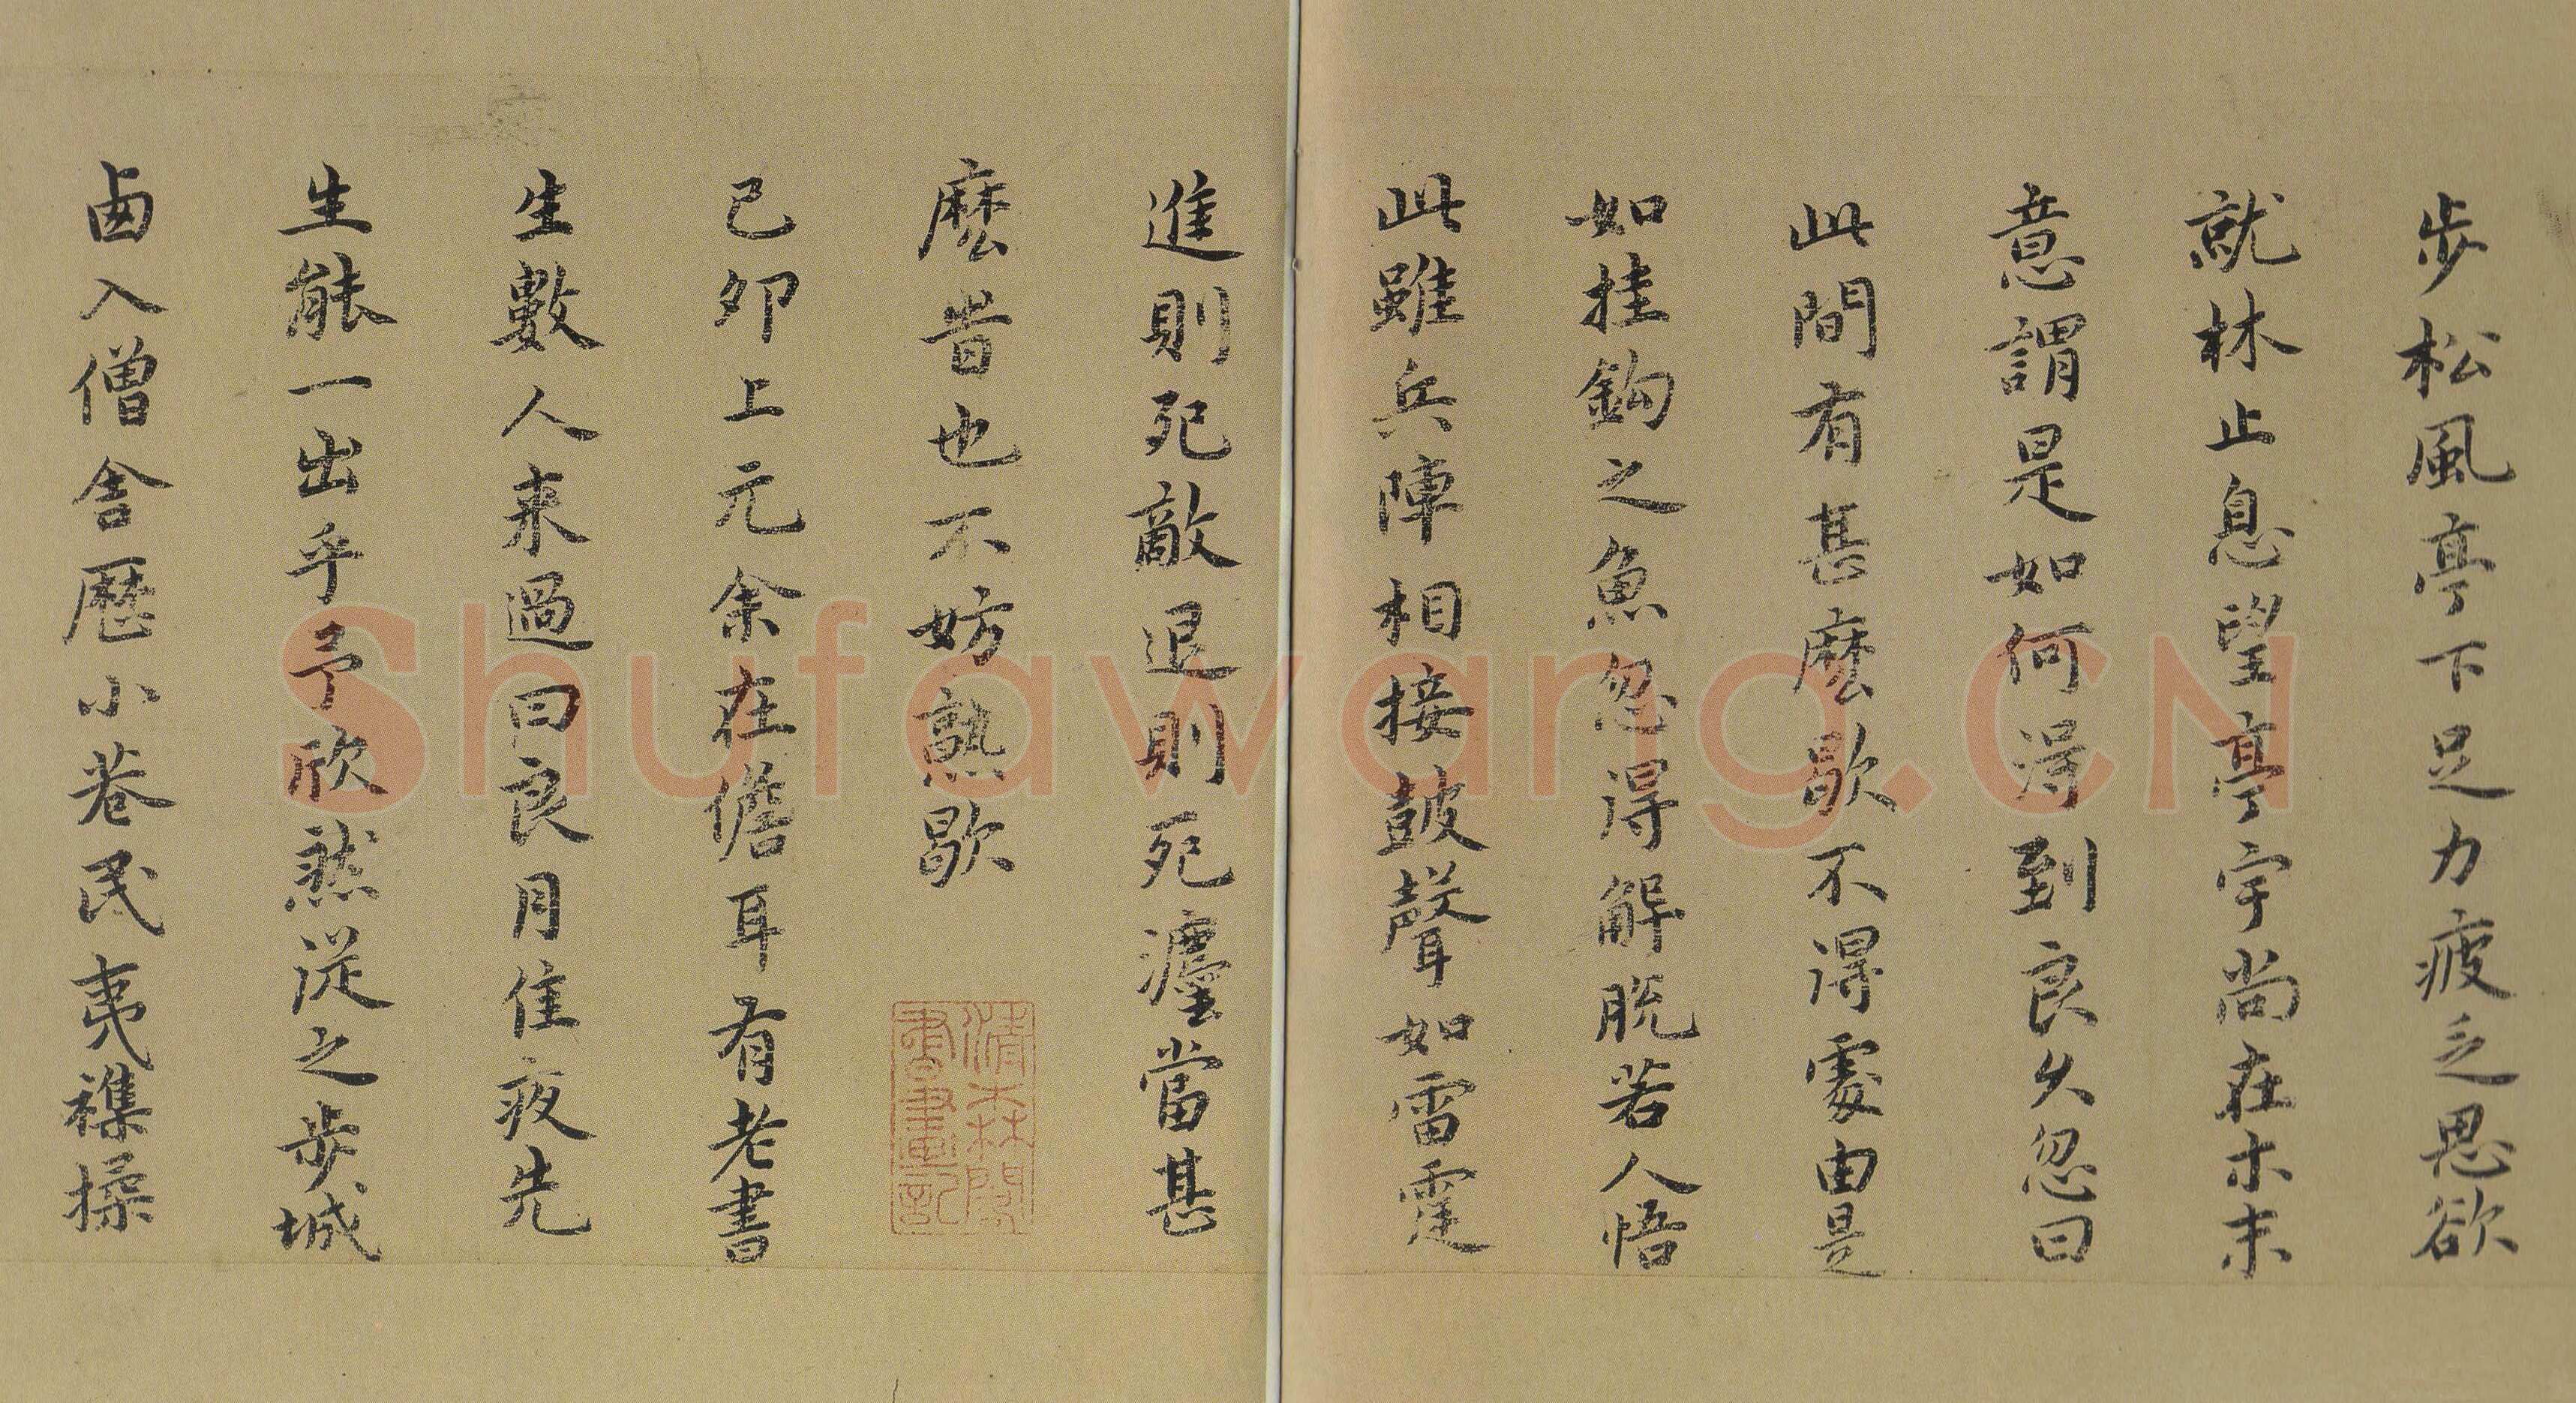 步松風亭下足力疲乏思欲
就林止息望亭宇尚在木末
意謂是如何得到良久忽曰
此間有甚麽歇不得處由是
如挂鈎之魚忽得解脫若人悟
此雖兵陣相接鼓聲如雷霆
進則死敵退則死瀍當甚
麽昔也不妨熟歇
己卯上元余在儋耳有老書
生數人來過曰良月佳夜先
生能一出乎予欣然從之步城
西入僧舍歷小巷民夷襍揉
清森閣書畫記
Shufawang.CN